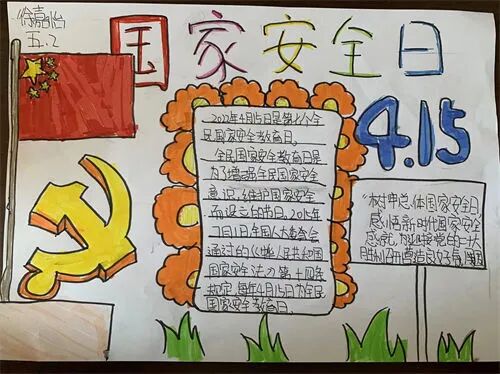 徐嘉怡
五.2
国家安全日
4.15
2022年4月15日是第七个全
民国家安全教育日。
全民国家安全教育日是
为了增强全民国家安全
意识,维护国家安全
而设立的节日。2015年
7月1日全国人大常委会
通过的《中华人民共和国
国家安全法》第十四条
规定,每年4月15日为全民
国家安全教育日。
"树牢总体国家安全
感悟新时代国家安全
成就,为迎接党的二十大
胜利召开营造良好氛围